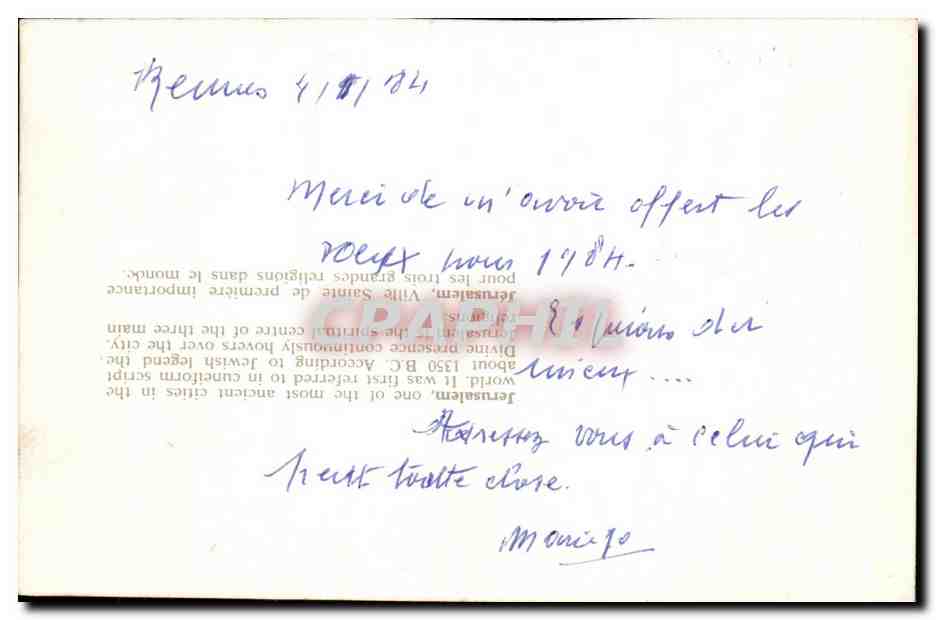 Rennes 4/1/84
Merci de m'avoir offert les
voeux pour 1984.
Espérons du
mieux ....
Adressez vous à celui qui
peut toute chose.
Marie Jo
Jerusalem, one of the most ancient cities in the
world. It was first referred to in cuneiform script
about 1350 B.C. According to Jewish legend the
Divine presence continuously hovers over the city.
Jerusalem is the spiritual centre of the three main
religions.
Jerusalem, Ville Sainte de première importance
pour les trois grandes religions dans le monde.
CPAPHIL